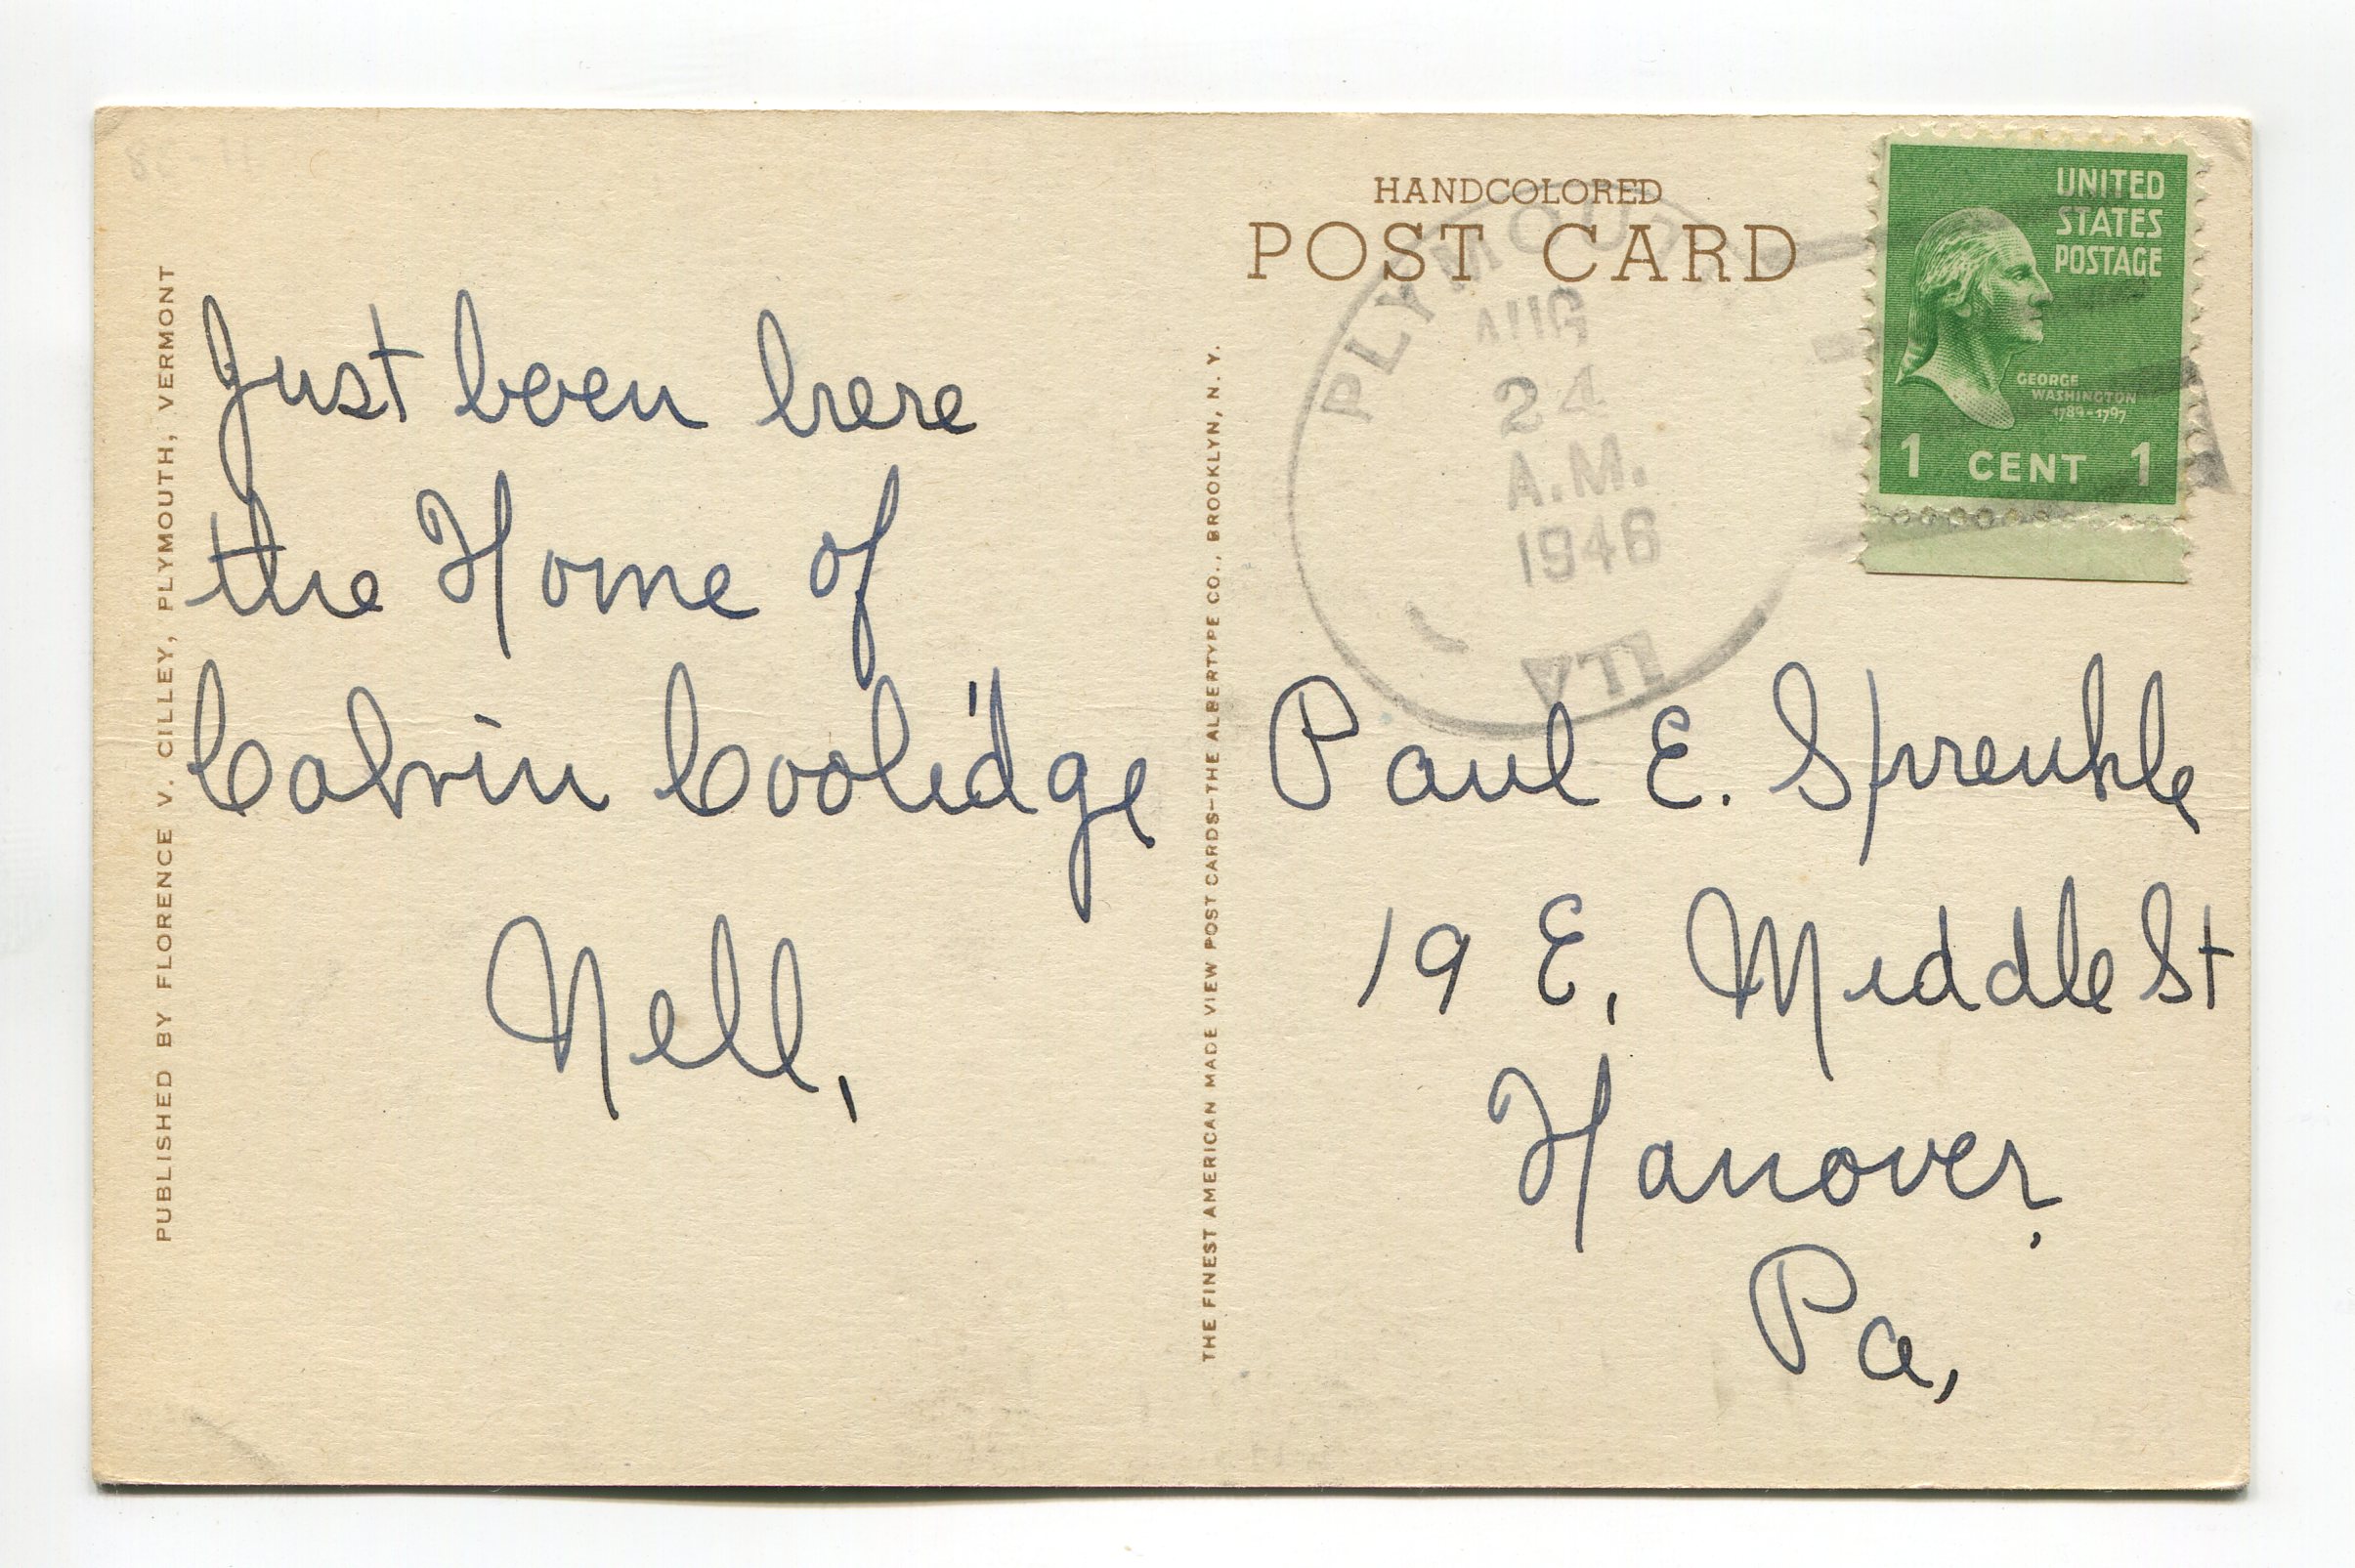 PUBLISHED BY FLORENCE V. CILLEY, PLYMOUTH, VERMONT
Just been here
the Home of
Calvin Coolidge
Nell,
THE FINEST AMERICAN MADE VIEW POST CARDS—THE ALBERTYPE CO., BROOKLYN, N. Y.
HANDCOLORED
POST CARD
PLYMOUT
AUG
24
A.M.
1946
UNITED
STATES
POSTAGE
GEORGE
WASHINGTON
1789-1797
1 CENT 1
Paul E. Sprenkle
19 E, Middle St
Hanover,
Pa,